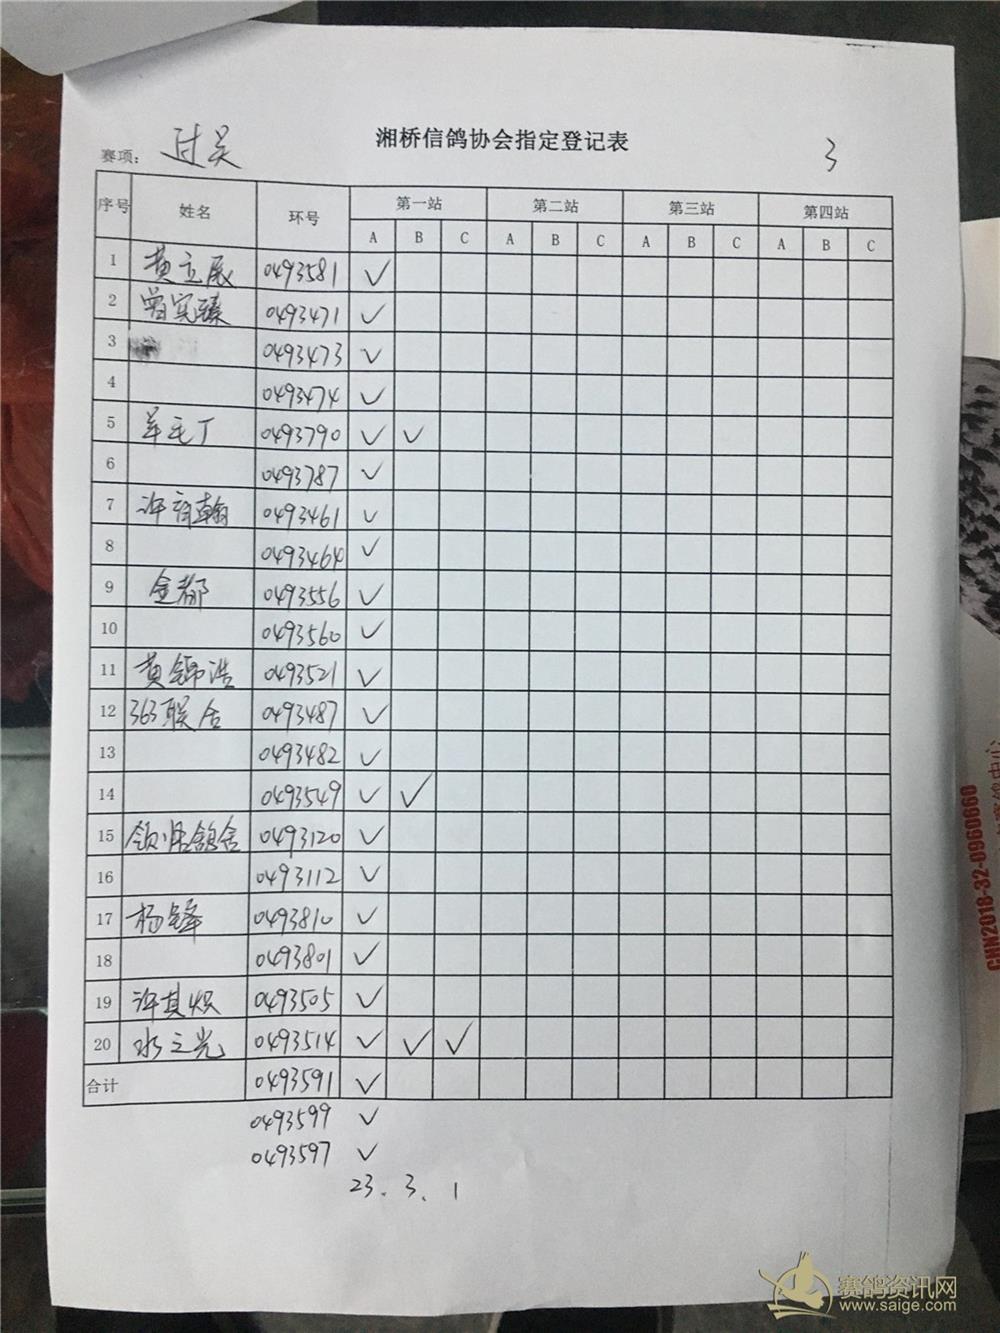 湘桥信鸽协会指定登记表
赛项： 3
序号 姓名 环号 第一站 第二站 第三站 第四站
A B C A B C A B C A B C
1 黄立展 0493581 ✓
2 曾宪臻 0493471 ✓
3 0493473 ✓
4 0493474 ✓
5 羊毛丁 0493790 ✓ ✓
6 0493787 ✓
7 0493461 ✓
8 0493464 ✓
9 金都 0493556 ✓
10 0493560 ✓
11 黄锦浩 0493521 ✓
12 363联合 0493487 ✓
13 0493482 ✓
14 0493549 ✓ ✓
15 鸽舍 0493120 ✓
16 0493112 ✓
17 杨锋 0493810 ✓
18 0493801 ✓
19 许其炽 0493505 ✓
20 水之光 0493514 ✓ ✓ ✓
合计 0493591 ✓
0493599 ✓
0493597 ✓
23. 3. 1
CHN2018-32-0960660
赛鸽资讯网
www.saige.com